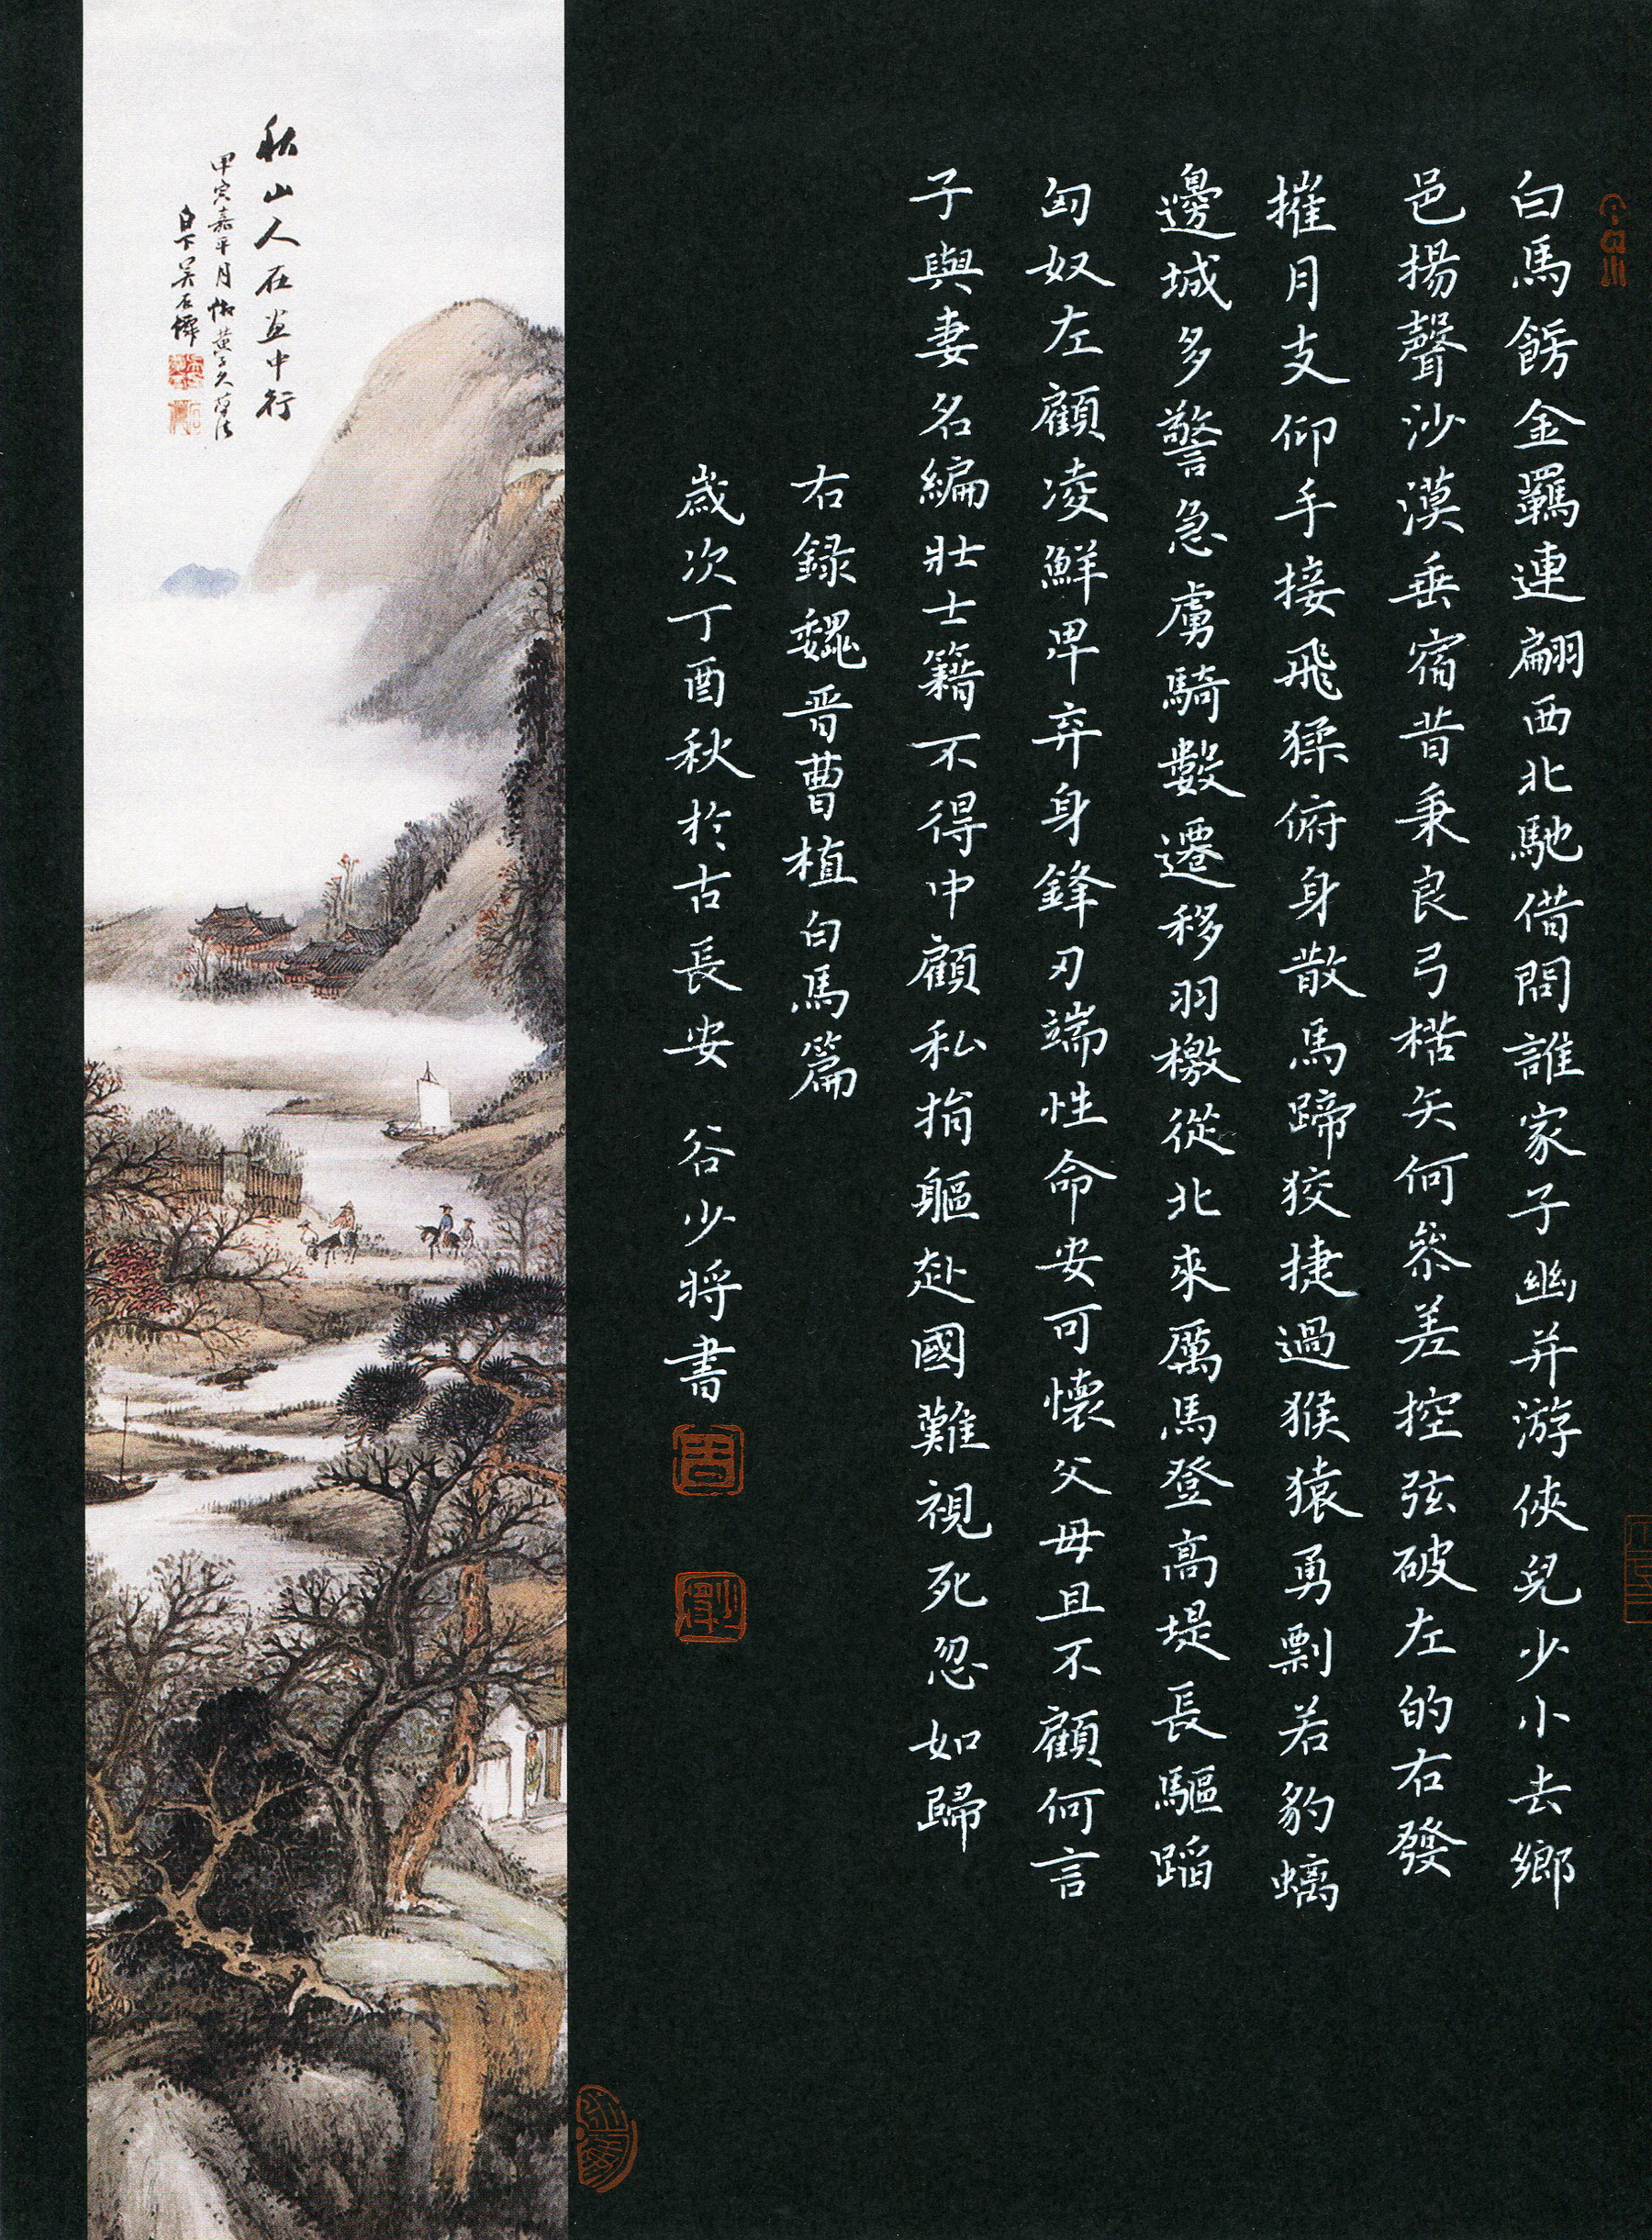 白馬餝金羈連翩西北馳借問誰家子幽并游俠兒少小去鄉
邑揚聲沙漠垂宿昔秉良弓楛矢何參差控弦破左的右發
摧月支仰手接飛猱俯身散馬蹄狡捷過猴猿勇剽若豹螭
邊城多警急虜騎數遷移羽檄從北來厲馬登高堤長驅蹈
匈奴左顧凌鮮卑弃身鋒刃端性命安可懷父母且不顧何言
子與妻名編壯士籍不得中顧私捐軀赴國難視死忽如歸
右錄魏晋曹植白馬篇
歲次丁酉秋於古長安 谷少將書
秋山人在画中行
甲寅嘉平月仿黃子久筆法
白下吴石僊